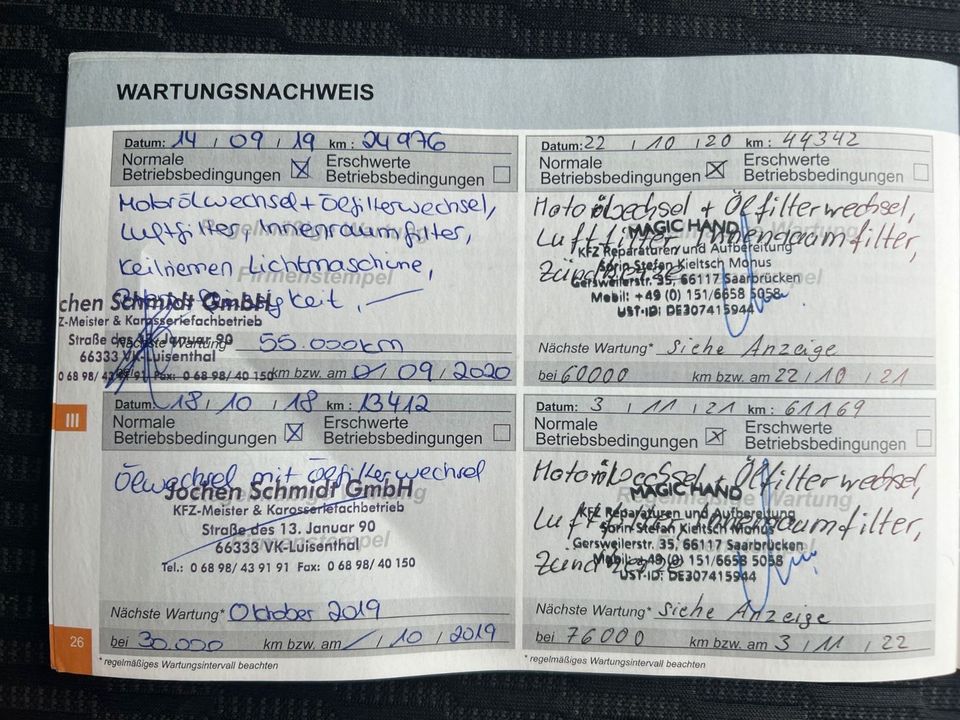 WARTUNGSNACHWEIS
Datum: 14 / 09 / 19 km: 24976
Normale Betriebsbedingungen ☒ Erschwerte Betriebsbedingungen ☐
Motorölwechsel + Ölfilterwechsel,
Luftfilter, Innenraumfilter,
Keilriemen Lichtmaschine,
Jochen Schmidt GmbH
KFZ-Meister & Karosseriefachbetrieb
Straße des 13. Januar 90
66333 VK-Luisenthal
0 68 98/ 43 91 91 Fax: 0 68 98/ 40 150
Nächste Wartung* 55.000km
bei km bzw. am 01 / 09 / 2020
Datum: 18 / 10 / 18 km: 13412
Normale Betriebsbedingungen ☒ Erschwerte Betriebsbedingungen ☐
Ölwechsel mit Ölfilterwechsel
Jochen Schmidt GmbH
KFZ-Meister & Karosseriefachbetrieb
Straße des 13. Januar 90
66333 VK-Luisenthal
Firmenstempel
Tel.: 0 68 98/ 43 91 91 Fax: 0 68 98/ 40 150
Nächste Wartung* Oktober 2019
bei 30.000 km bzw. am / 10 / 2019
* regelmäßiges Wartungsintervall beachten
III
26
Datum: 22 / 10 / 20 km: 44342
Normale Betriebsbedingungen ☒ Erschwerte Betriebsbedingungen ☐
Ölfilterwechsel,
Luftfilter
MAGIC HAND
KFZ Reparaturen und Aufbereitung
Sorin Stefan Kieltsch Monus
Gersweilerstr. 35, 66117 Saarbrücken
Mobil: +49 (0) 151/6658 5058
UST-ID: DE307415944
Nächste Wartung* siehe Anzeige
bei 60000 km bzw. am 22 / 10 / 21
Datum: 3 / 11 / 21 km: 61169
Normale Betriebsbedingungen ☒ Erschwerte Betriebsbedingungen ☐
Regelmäßige Wartung
Ölfilterwechsel,
MAGIC HAND
KFZ Reparaturen und Aufbereitung
Sorin Stefan Kieltsch Monus
Gersweilerstr. 35, 66117 Saarbrücken
Mobil: +49 (0) 151/6658 5058
UST-ID: DE307415944
Nächste Wartung* siehe Anzeige
bei 76000 km bzw. am 3 / 11 / 22
* regelmäßiges Wartungsintervall beachten